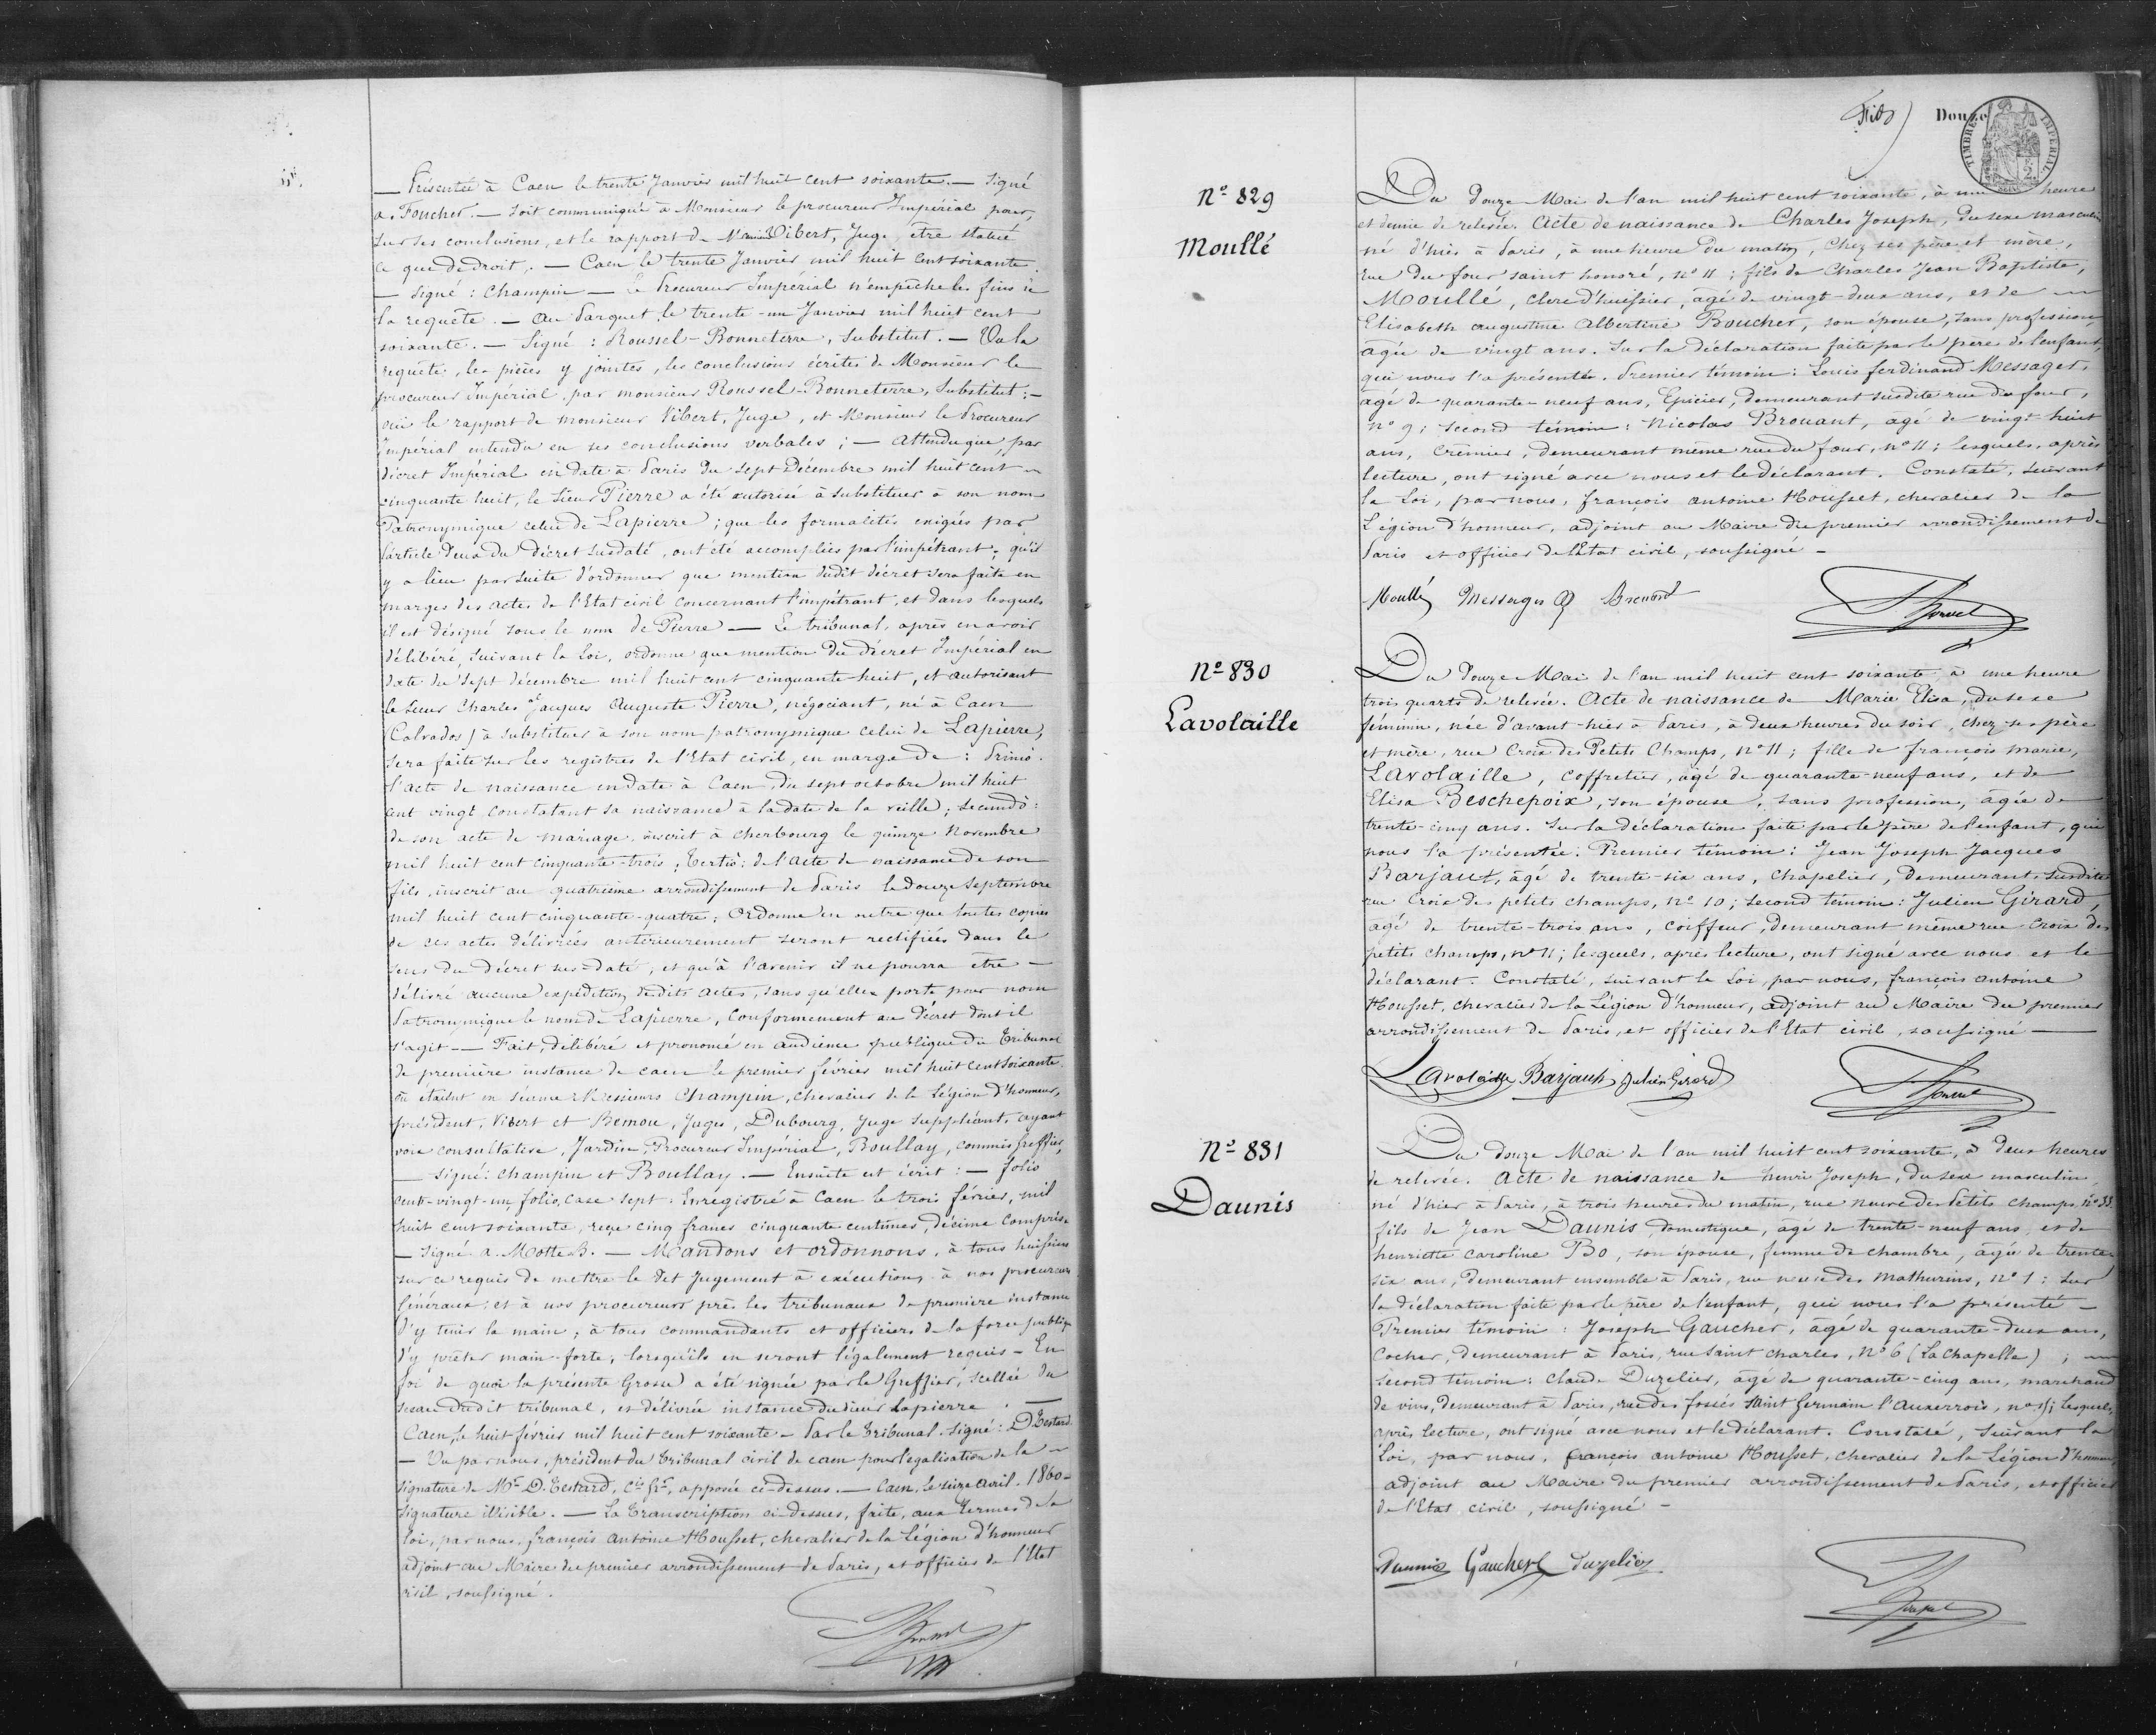 — Présentée à Caen le trente Janvier mil huit cent soixante. — Signé
a. Foucher. — Soit communiqué à Monsieur le procureur Impérial pour,
sur ses conclusions, et le rapport de Vibert, Juge, être statué
ce que de droit. — Caen le trente Janvier mil huit cent soixante.
— Signé : Champin — Le Procureur Impérial n'empêche les fins de
la requête. — Au Parquet, le trente-un Janvier mil huit cent
soixante. — Signé : Roussel-Bonneterre, Substitut. — Vu la
requête, les pièces y jointes, les conclusions écrites de Monsieur le
procureur Impérial, par monsieur Roussel-Bonneterre, Substitut ; —
oui le rapport de monsieur Vibert, Juge, et Monsieur le Procureur
Impérial entendu en ses conclusions verbales ; — Attendu que, par
décret Impérial en date à Paris du sept Décembre mil huit cent
cinquante huit, le Sieur Pierre a été autorisé à substituer à son nom
Patronymique celui de Lapierre ; que les formalités exigées par
l'article deux du décret susdaté, ont été accomplies par l'impétrant ; qu'il
y a lieu par suite d'ordonner que mention dudit décret sera faite en
marges des actes de l'Etat civil concernant l'impétrant, et dans lesquels
il est désigné sous le nom de Pierre — Le tribunal, après en avoir
délibéré, suivant la Loi, ordonne que mention du décret Impérial en
date du sept décembre mil huit cent cinquante-huit, et autorisant
le Sieur Charles Jacques Auguste Pierre, négociant, né à Caen
(Calvados) à substituer à son nom patronymique celui de Lapierre,
sera faite sur les registres de l'Etat civil, en marge de : Primò
l'acte de naissance en date à Caen, du sept octobre mil huit
cent vingt constatant sa naissance à la date de la veille ; Secundò :
de son acte de mariage inscrit à Cherbourg le quinze Novembre
mil huit cent cinquante-trois ; Tertiò : de l'acte de naissance de son
fils, inscrit au quatrième arrondissement de Paris le douze Septembre
mil huit cent cinquante-quatre ; Ordonne en outre que toutes copies
de ces actes délivrées antérieurement seront rectifiées dans le
sens du décret sus-daté, et qu'à l'avenir il ne pourra être —
délivré aucune expédition desdits actes, sans qu'elle porte pour nom
Patronymique le nom de Lapierre, Conformément au décret dont il
s'agit — Fait, délibéré et prononcé en audience publique du Tribunal
de première instance de caen le premier février mil huit cent soixante
où étaient en séance Messieurs Champin, chevalier de la Légion d'honneur,
président, Vibert et Bemou, Juges, Dubourg, Juge Suppléant, ayant
voie consultative, Jardin, Procureur Impérial, Boullay, commis greffier,
— Signé : Champin et Boullay. — Ensuite est écrit : — folio
cent-vingt-un, folio, case sept : Enregistré à Caen le trois février, mil
huit cent soixante, reçu cinq francs cinquante centimes, décime compris.
— Signé a. Motte B. — Mandons et ordonnons, à tous huissiers
sur ce requis de mettre le dit Jugement à exécution, à nos procureurs
Généraux, et à nos procureurs près les tribunaux de première instance
d'y tenir la main ; à tous commandants et officiers de la force publique
d'y prêter main-forte, lorsqu'ils en seront légalement requis — En
foi de quoi la présente Grosse a été signée par le Greffier, scellée du
sceau dudit tribunal, et délivrée instance du sieur Lapierre.
Caen, le huit février mil huit cent soixante — Par le Tribunal. Signé : D. Testard
— Vu par nous, président du Tribunal civil de caen pour légalisation de la —
signature de Mr D. Testard, Cis Gr, apposée ci-dessus. — Caen, le seize Avril. 1860 —
Signature illisible. — La Transcription ci-dessus, faite, aux termes de la
loi, par nous, françois antoine Housset, chevalier de la Légion d'honneur
adjoint au Maire du premier arrondissement de Paris, et officier de l'Etat
civil, soussigné.
Douze
TIMBRE IMPERIAL
Nº 829
Moullé
Du Douze Mai de l'an mil huit cent soixante, à une heure
et demie de relevée. Acte de naissance de Charles Joseph, du sexe masculin
né d'hier à Paris, à une heure du matin, chez ses père et mère,
rue du four saint honoré, nº 11 ; fils de Charles Jean Baptiste,
Moullé, clerc d'huissier, âgé de vingt-deux ans, et de
Elisabeth augustine Albertine Boucher, son épouse, sans profession,
âgée de vingt ans. Sur la déclaration faite par le père de l'enfant,
qui nous l'a présenté. Premier témoin : Louis ferdinand Messager,
âgé de quarante-neuf ans, Epicier, demeurant susdite rue du four,
nº 9 ; Second témoin : Nicolas Brouant, âgé de vingt-huit
ans, Crémier, demeurant même rue du four, nº 11 ; lesquels, après
lecture, ont signé avec nous et le déclarant. Constaté, suivant
la Loi, par nous, françois antoine Housset, chevalier de la
Légion d'honneur, adjoint au Maire du premier arrondissement de
Paris et officier de l'Etat civil, soussigné —
Moullé Messager Brouant
Nº 830
Lavolaille
Du Douze Mai de l'an mil huit cent soixante à une heure
trois quarts de relevée. Acte de naissance de Marie Elisa, du sexe
féminin, née d'avant-hier à Paris, à deux heures du soir, chez ses père
et mère, rue Croix des Petits Champs, nº 11 ; fille de françois marie,
Lavolaille, coffretier, âgé de quarante-neuf ans, et de
Elisa Beschepoix, son épouse, sans profession, âgée de
trente-cinq ans. Sur la déclaration faite par le père de l'enfant, qui
nous l'a présentée. Premier témoin : Jean Joseph Jacques
Barjaut, âgé de trente-six ans, chapelier, demeurant susdite
rue Croix des petits champs, nº 10 ; second témoin : Julien Girard,
âgé de trente-trois ans, coiffeur, demeurant même rue Croix des
petits champs, nº 11 ; lesquels, après lecture, ont signé avec nous et le
déclarant. Constaté, suivant la Loi, par nous, françois antoine
Housset, chevalier de la Légion d'honneur, adjoint au Maire du premier
arrondissement de Paris, et officier de l'Etat civil, soussigné —
Lavolaille Barjaut Julien Girard
Nº 831
Daunis
Du douze Mai de l'an mil huit cent soixante, à deux heures
de relevée. Acte de naissance de henri Joseph, du sexe masculin,
né d'hier à Paris, à trois heures du matin, rue neuve des Petits Champs, nº 33.
fils de Jean Daunis, domestique, âgé de trente-neuf ans, et de
henriette caroline Bo, son épouse, femme de chambre, âgée de trente-
six ans, demeurant ensemble à Paris, rue neuve des Mathurins, nº 1 : Sur
la déclaration faite par le père de l'enfant, qui nous l'a présenté —
Premier témoin : Joseph Gaucher, âgé de quarante-deux ans,
Cocher, demeurant à Paris, rue saint charles, Nº 6 (La Chapelle) ;
second témoin : claude Duzelier, âgé de quarante-cinq ans, marchand
de vins, demeurant à Paris, rue des fossés saint germain l'auxerrois, lesquels,
après lecture, ont signé avec nous et le déclarant. Constaté, suivant la
Loi, par nous, françois antoine Housset, chevalier de la Légion d'honneur,
adjoint au Maire du premier arrondissement de Paris, et officier
de l'Etat civil, soussigné —
Daunis Gaucher Duzelier